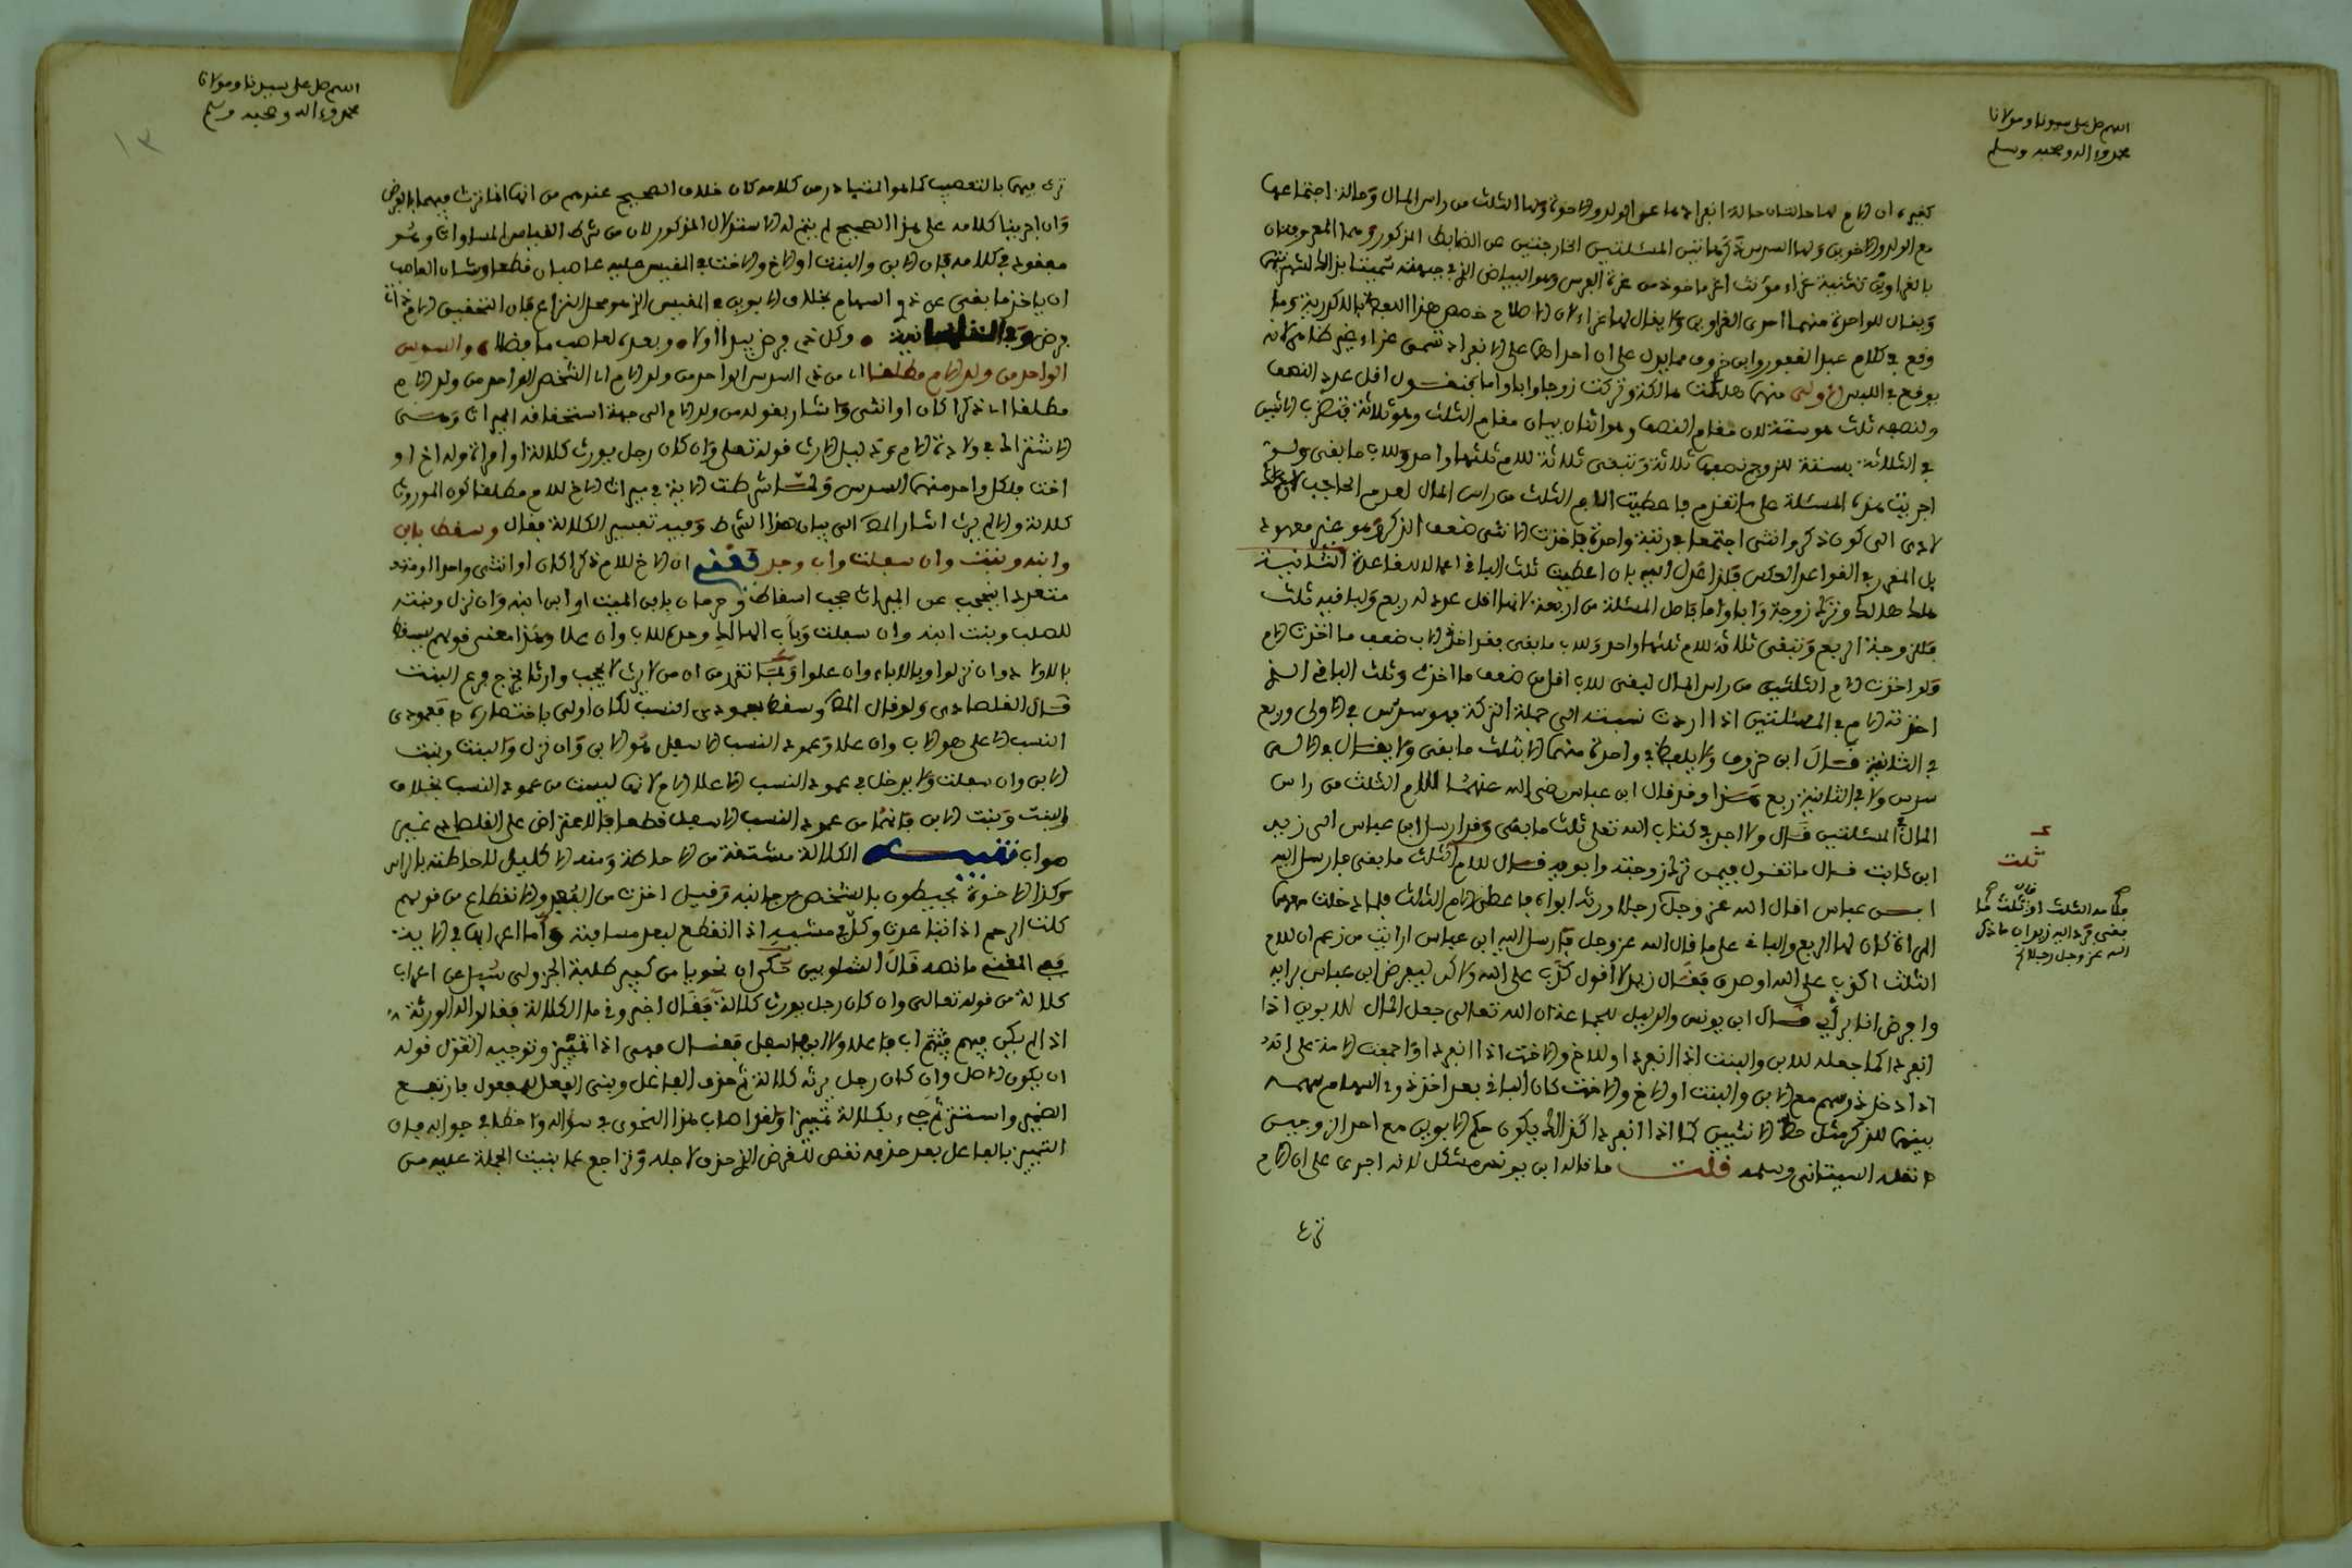 اللهم صل على سيدنا ومولانا
محمد وءاله وصحبه وسلم
كغيره ان الام لها حالتان حالة انفرادها عن الولد والاخوة ولها الثلث من راس المال وحالة اجتماعها
مع الولد والاخوين ولها السدس ذكر هاتين المسئلتين الخارجتين عن الضابط المذكور وهما المعروفتان
بالغراوين تثنية غراء مؤنث اغر ماخوذ من غرة الفرس وهو البياض الذي في جبهته سميتا بذالك لشهرتهما
ويقال للواحدة منهما احدى الغراوين ولا يقال لها غراء لان الاصطلاح خصص هذا اللفظ
وقع في كلام عبد الغفور وابن خروف مما يدل على ان احداهما على الانفراد تسمى غراء غير ظاهر لانه
يوقع في اللبس الاولى منهما هلكت هالكة وتركت زوجا وابا واما فنقول اقل عدد النصف
ولنصفه ثلث هو ستة لان مقام النصف هو اثنان مقام الثلث هو ثلاثة فتضرب الاثنين
في الثلاثة بستة للزوج نصفها ثلاثة وتبقى ثلاثة للام ثلثها واحد وللاب ما بقي ولو
اجريت هذه المسئلة على ما تقدم فاعطيت للام الثلث من راس المال لعدم الحاجب
لادى الى كون ذكر وانثى اجتمعا في رتبة واحدة فاخذت الانثى ضعف الذكر وهو غير معهود
بل المقرر في القواعد العكس فلذا عدل اليه بان اعطيت ثلث الباقي اعمالا للقاعدة الثانية
هلك هالك وترك زوجة وابا واما فاصل المسئلة من اربعة لانها اقل عدد له ربع ولباقيه ثلث
فللزوجة الربع وتبقى ثلاثة للام ثلثها واحد وللاب ما بقي فقد اخذ الاب ضعف ما اخذت الام
ولو اخذت الام الثلث من راس المال لبقي للاب اقل من ضعف ما اخذت وثلث الباقي الذي
اخذته الام في المسئلتين اذا اردت نسبته الى جملة التركة فهو سدس في الاولى وربع
في الثانية قال ابن خروف ولا يلفظ في واحدة منهما الا بثلث ما بقي ولا يقال في الاولى
سدس ولا في الثانية ربع هذا وقد قال ابن عباس رضي الله عنهما للام الثلث من راس
المال في المسئلتين قال ولا اجد في كتاب الله تعلى ثلث ما بقي وقد ارسل ابن عباس الى زيد
ابن ثابت قال ما تقول فيمن ترك زوجته وابويه فقال للام ثلث ما بقي فارسل اليه
ابن عباس اقال الله عز وجل رجلا ورثه ابواه فاعطى الام الثلث فلما دخلت معهما
المراة كان لها الربع والباقي على ما قال الله عز وجل فارسل اليه ابن عباس ارايت من زعم ان للام
الثلث اكذب على الله او صدق فقال زيد لا اقول كذب على الله ولاكن ليفرض ابن عباس برايه
وافرض انا برأيي قال ابن يونس والدليل للجماعة ان الله تعالى جعل المال للابوين اذا
انفردا كما جعله للابن والبنت اذا انفردا او للاخ والاخت اذا انفردا واجمعت الامة على انه
اذا دخل ذو سهم مع الابن والبنت او الاخ والاخت كان الباقي بعد اخذ ذوي السهام سهمه
بينهما للذكر مثل حظ الانثيين كما اذا انفردا كذالك يكون حكم الابوين مع احد الزوجين
نقله السيتاني وسلمه قلت ما قاله ابن يونس مشكل لانه اجرى على ان الام
ثلث
فلامه الثلث او قال ثلث ما
بقي فرد اليه زيد ان ما ذكر
الله عز وجل رجلا
ترث
اللهم صل على سيدنا ومولانا
محمد وءاله وصحبه وسلم
١٣
ترث فيهما بالتعصيب كما هو المتبادر من كلامه كان خلاف الصحيح عندهم من انها انما ترث فيهما بالفرض
وان اجرينا كلامه على هذا الصحيح لم يتم له الاستدلال المذكور لان من شرط القياس المساواة وهو
مفقود في كلامه فان الابن والبنت او الاخ والاخت في المقيس عليه عاصبان قطعا وشان العاصب
ان ياخذ ما بقي عن ذوي السهام بخلاف الابوين في المقيس الذي هو محل النزاع فان التحقيق الام ذات
فرض وكل ذي فرض يبدا اولا وبعده لعاصب ما فضلا والسدس
الواحد من ولد الام مطلقا اي من ذي السدس الواحد من ولد الام اي الشخص الواحد من ولد الام
مطلقا اي ذكرا كان او انثى واشار بقوله من ولد الام الى جهة استحقاقه الميراث وهي
الاشتراك في ولادة الام ودليل الارث قوله تعلى وان كان رجل يورث كلالة او امراة وله اخ او
اخت فلكل واحد منهما السدس ولما شرطت الاية في ميراث الاخ للام مطلقا كون الموروث
كلالة والا لم يرث اشار المص الى بيان هذا الشرط وفيه تفسير الكلالة فقال وسقطا بابن
وابنه وبنت وان سفلت واب وجد فقفي ان الاخ للام ذكرا كان او انثى واحدا او
متعددا ينحجب عن الميراث حجب اسقاط وحرمان بابن الميت او ابن ابنه وان نزل وبنته
للصلب وبنت ابنه وان سفلت وباب الهالك وجده للاب وان علا وهذا معنى قولهم يسقط
بالاولاد وان نزلوا وبالاباء وان علوا ولما تقدم من ان من لا يرث لا يحجب وارثا يخرج فرع البنت
قال القلصادي ولو قال المص وسقطا بعمودي النسب لكان اولى باختصاره فعمودي
النسب الاعلى هو الاب وان علا وعمود النسب الاسفل هو الابن وان نزل والبنت وبنت
الابن وان سفلت ولا يدخل في عمود النسب الاعلا الام لانها ليست من عمود النسب بخلاف
البنت وبنت الابن فانهما من عمود النسب الاسفل قطعا فالاعتراض على القلصادي غير
صواب تنبيه الكلالة مشتقة من الاحاطة ومنه الاكليل لاحاطته بالراس
وكذا الاخوة يحيطون بالشخص من جانبه وقيل اخذت من البعد والانقطاع من قولهم
كلت الرحم اذا تباعدت وكل في مشيه اذا انقطع لبعد مسافته واما اعرابها في الاية
ففي المغني ما نصه قال الشلوبين حكى ان نحويا من كبير طلبة الجزولي سئل عن اعراب
كلالة من قوله تعالى وان كان رجل يورث كلالة فقال اخبروني ما الكلالة فقالوا له الورثة
اذا لم يكن فيهم اب فما علا ولا ابن فما سفل فقال فهي اذا تمييز وتوجيه القول قوله
ان يكون الاصل وان كان رجل يرثه كلالة ثم حذف الفاعل وبني الفعل للمفعول فارتفع
الضمير واستتر ثم جيء بكلالة تمييزا ولقد اصاب هذا النحوي في سؤاله واخطا في جوابه فان
التمييز بالفاعل بعد حذفه نقض للغرض الذي حذف لاجله وتراجع عما بنيت الجملة عليه من